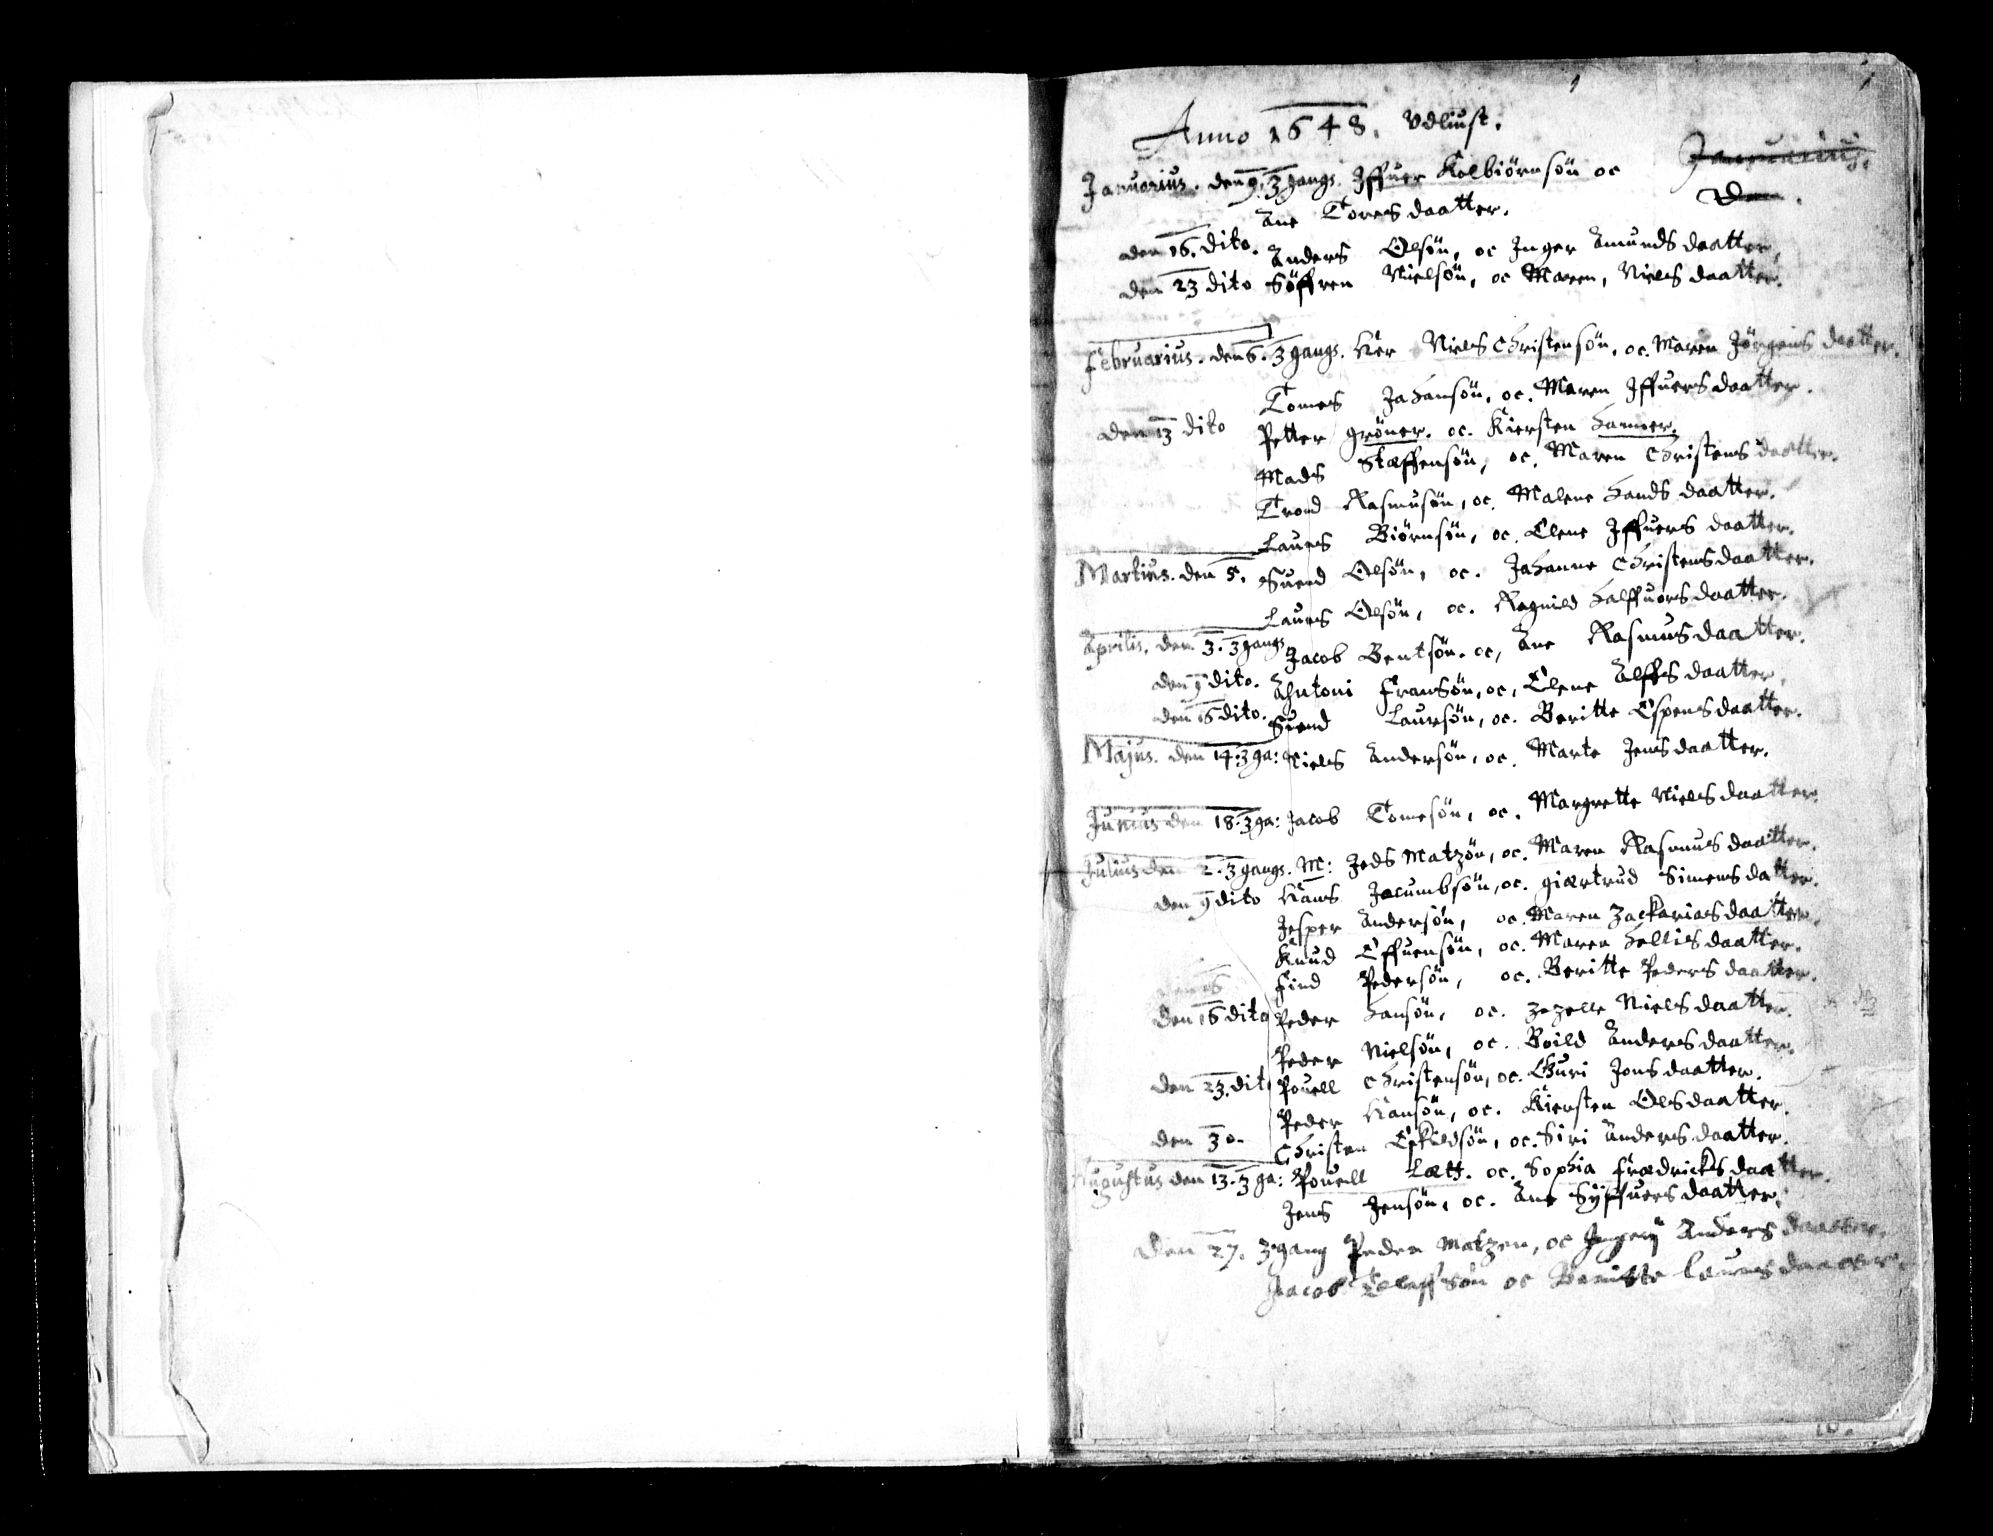 Anno 1648. Vdliust.
Januarius. den 9. 3 gangs. Iffuer Kolbiörnsön oc
Januarius.
Den.
Ane Tores daatter.
den 16. dito. Anders Olsön, oc Inger Amunds daatter,
den 23 dito Söffren Nielsön, oc Maren, Niels daatter.
Februarius. den 6. 3 gangs. Her Niels Christensön, oc. Maren Jörgens daatter.
Tomes Johansön, oc. Maren Iffuers daatter.
den 13 dito Petter gröner. oc. Kiersten
Mads Staffensön, oc. Maren Christens daatter.
Trond Rasmusön, oc. Malene Hands daatter.
Laurs Biörnsön, oc. Elene Iffuers daatter.
Martius. den 5. Suend Olsön, oc. Johanne Christens daatter.
Laurs Olsön, oc. Ragnild Halffuors daatter.
Aprilis. den 3. 3 gangs Jacob Bentsön. oc, Ane Rasmus daatter.
den 9 dito. Antoni Fransön, oc, Elene Alffs daatter,
den 16 dito. Suend Laursön, oc. Beritte Espens daatter.
Majus. den 14. 3 ga: Niels Andersön, oc. Marte Jens daatter.
Junius den 18. 3 ga: Jacob Tomesön, oc. Margrette Niels daatter.
Julius den 2. 3 gangs. M: Jeds Matzön, oc. Maren Rasmus daatter.
den 9 dito Hans Jacumbsön, oc. giærtrud Simens datter.
Jesper Andersön, oc. Maren Zackarias daatter.
Knud Effuensön, oc. Maren Hellis daatter.
Find Pedersön, oc. Beritte Peders daatter.
den 16 dito Peder Hansön, oc. Zezelle Niels daatter.
Peder Nielsön, oc. Boild Anders daatter.
den 23. dito Pouell Christensön, oc. Guri Jons daatter.
Peder Hansön, oc. Kiersten Ols daatter.
den 30. Christen Eskildsön, oc. Siri Anders daatter.
Augustus den 13. 3 ga: Pouell Lætt. oc. Sophia Frædricks daatter.
Jens Jensön, oc. Ane Syffuers daatter.
Den 27. 3 gang Peder Matzen, oc Anders daatter,
Jacob oc Beritte Laurs daatter.